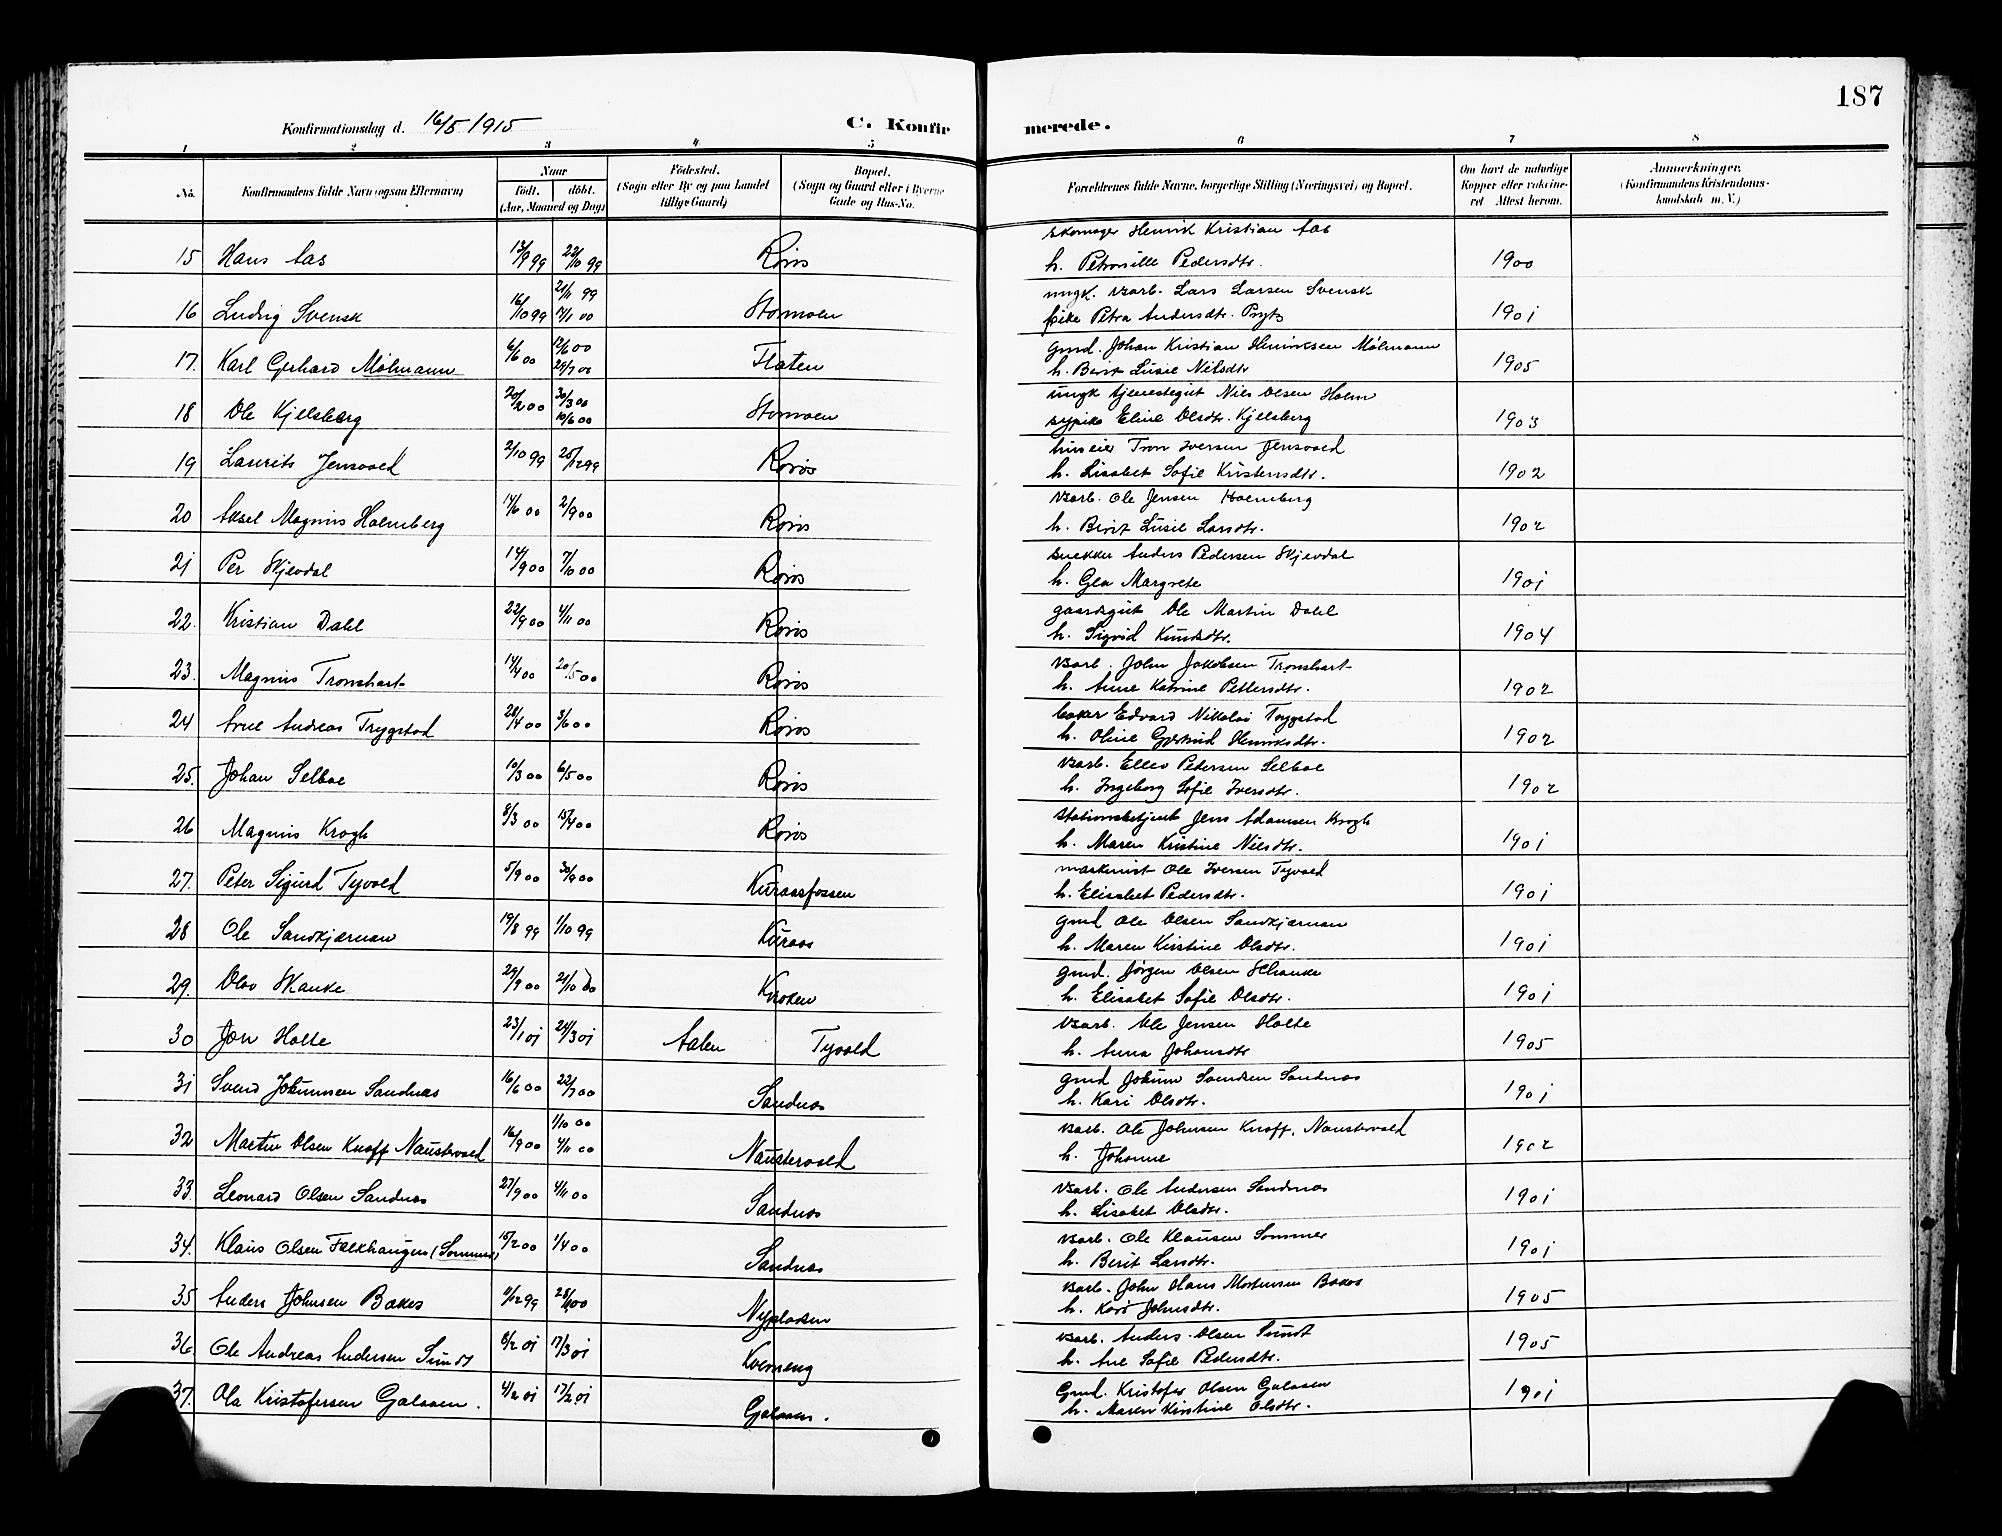 187
Konfirmationsdag d. 16/5 1915
C. Konfirmerede.
1 2 3 4 5 6 7 8
No. Konfirmandens fulde Navn (ogsaa Efternavn)
Naar født. døbt. (Aar, Maaned og Dag)
Fødested. (Sogn eller By og paa Landet tillige Gaard)
Bopæl. (Sogn og Gaard eller i Byerne Gade og Hus-No.
Forældrenes fulde Navne, borgerlige Stilling (Næringsvei) og Bopæl.
Om havt de naturlige Kopper eller vaksineret Attest herom.
Anmærkninger. (Konfirmandens Kristendomskundskab m. V.)
15 Hans Aas 13/9 99 22/10 99 Røros skomager Henrik Kristian Aas
h. Petronille Pedersdtr. 1900
16 Ludvig Svensk 16/10 99 21/11 99 Stormoen ungk. Barb. Lars Larsen Svensk
1/1 00 pike Petra Andersdtr. Prytz 1901
17. Karl Gerhard Mølmann 6/6 00 12/6 00 Flaten gmd. Johan Kristian Henriksen Mølmann
29/7 00 h. Berit Lusie Nilsdtr 1905
18 Ole Kjelsberg 20/2 00 30/3 00 Stormoen ungk tjenestegut Nils Olsen Holm
10/6 00 sypike Eline Olsdtr. Kjelsberg 1903
19 Laurits Jensvold 2/10 99 25/12 99 Røros huseier Tron Iversen Jensvold
h. Lisabet Sofie Kristensdtr. 1902
20 Aksel Magnus Holmberg 14/6 00 2/9 00 Røros Barb. Ole Jensen Holmberg
h. Berit Lusie Larsdtr. 1902
21 Per Skjevdal 14/9 00 7/10 00 Røros snekker Anders Pedersen Skjevdal
h. Gea Margrete 1901
22. Kristian Dahl 22/9 00 4/11 00 Røros gaardsgut Ole Martin Dahl
h. Sigrid Knudsdtr. 1904
23. Magnus Tronshart 14/4 00 20/5 00 Røros Barb. John Jakobsen Tronshart
h. Anne Katrine Pettersdtr. 1902
24 Arne Andreas Trygstad 28/4 00 3/6 00 Røros baker Edvard Nikolai Trygstad
h. Oline Gjertrud Henriksdtr. 1902
25. Johan Selboe 10/3 00 6/5 00 Røros Barb. Ellev Pedersen Selboe
h. Ingeborg Sofie Iversdtr. 1902
26 Magnus Krogh 8/3 00 15/4 00 Røros stationsbetjent Jens Adamsen Krogh
h. Maren Kristine Nilsdtr. 1901
27. Peter Sigurd Tyvold 5/9 00 30/9 00 Kuraasfossen maskinist Ole Iversen Tyvold
h. Elisabet Pedersdtr. 1901
28 Ole Sandkjærnan 19/8 99 1/10 99 Kuraas gmd Ole Olsen Sandkjærnan
h. Maren Kristine Olsdtr. 1901
29. Olav Skanke 29/9 00 21/10 00 Kroken gmd. Jørgen Olsen Schanke
h. Elisabet Sofie Olsdtr. 1901
30 Jon Holte 23/1 01 24/3 01 Aalen Tyvold Barb. Ole Jensen Holte
h. Anna Johansdtr 1905
31 Svend Jokumsen Sandnæs 16/6 00 22/7 00 Sandnæs gmd Jokum Svendsen Sandnæs
h. Kari Olsdtr. 1901
32 Martin Olsen Knoff Naustervold 16/9 00 1/10 00 Naustervold Barb. Ole Johnsen Knoff, Naustervold
4/11 00 h. Johanne 1902
33. Leonard Olsen Sandnæs 27/9 00 4/11 00 Sandnæs Barb. Ole Andersen Sandnæs
h. Lisabet Olsdtr. 1901
34. Klaus Olsen Falkhaugen (Sommer) 15/2 00 1/4 00 Sandnæs Barb. Ole Klausen Sommer
h. Berit Larsdtr. 1901
35 Anders Johnsen Bakos 11/12 99 Nyplassen Barb. John Hans Mortensen Bakos
h. Kari Johnsdtr. 1905
36 Ole Andreas Andersen Sundt 8/2 01 17/3 01 Kverneng Barb. Anders Olsen Sundt
h. Ane Sofie Pedersdtr. 1905
37. Ola Kristofersen Galaaen. 4/2 01 17/2 01 Galaaen. Gmd. Kristofer Olsen Galaaen
h. Maren Kirstine Olsdtr. 1901